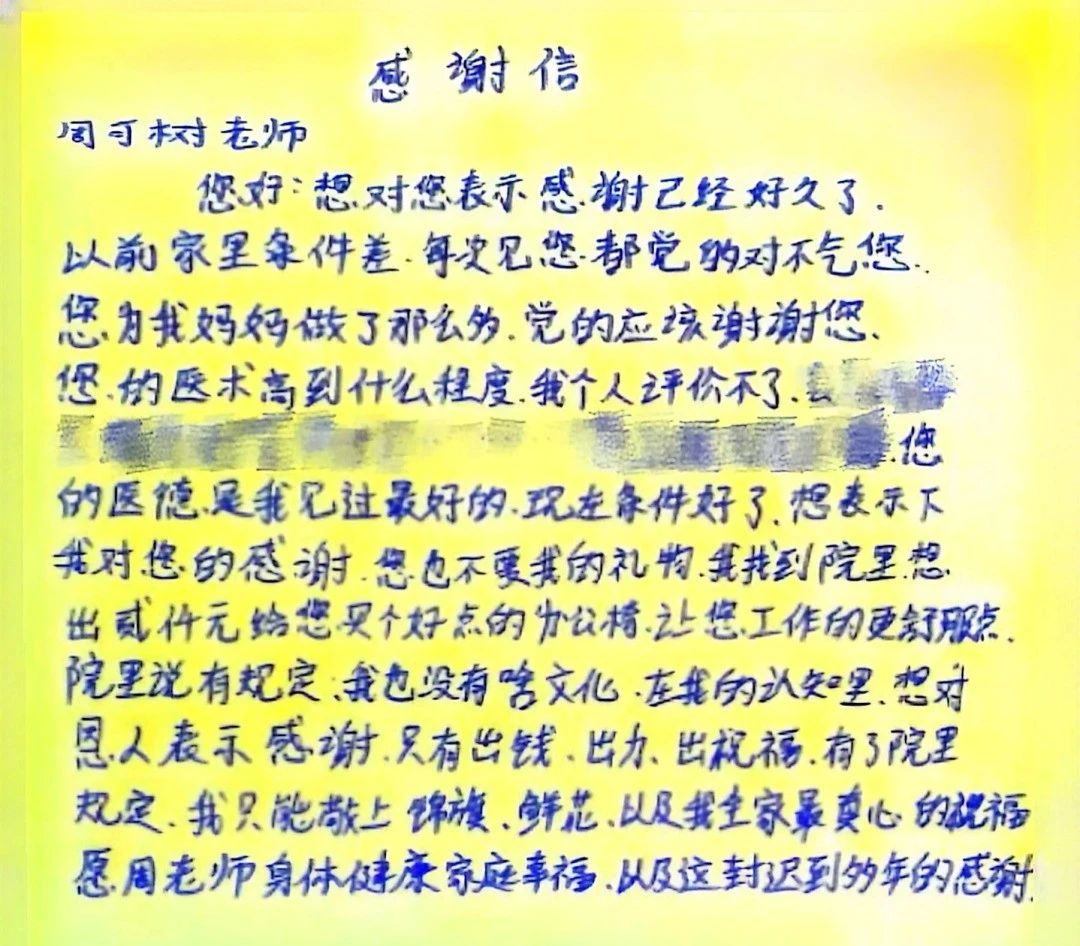 感谢信
周可树老师
您好:想对您表示感谢已经好久了.
以前家里条件差.每次见您.都觉的对不气您..
您.为我妈妈做了那么多.觉的应该谢谢您.
您.的医术高到什么程度.我个人评价不了.
您
的医德.是我见过最好的.现在条件好了.想表示下
我对您的感谢.您也不要我的礼物.我找到院里.想
出贰仟元给您买个好点的办公椅.让您工作的更舒服点.
院里说有规定.我也没有啥文化.在我的认知里.想对
恩人表示感谢.只有出钱.出力、出祝福.有了院里
规定.我只能敬上锦旗、鲜花.以及我全家最真心的祝福
愿周老师身体健康家庭幸福.以及这封迟到多年的感谢.